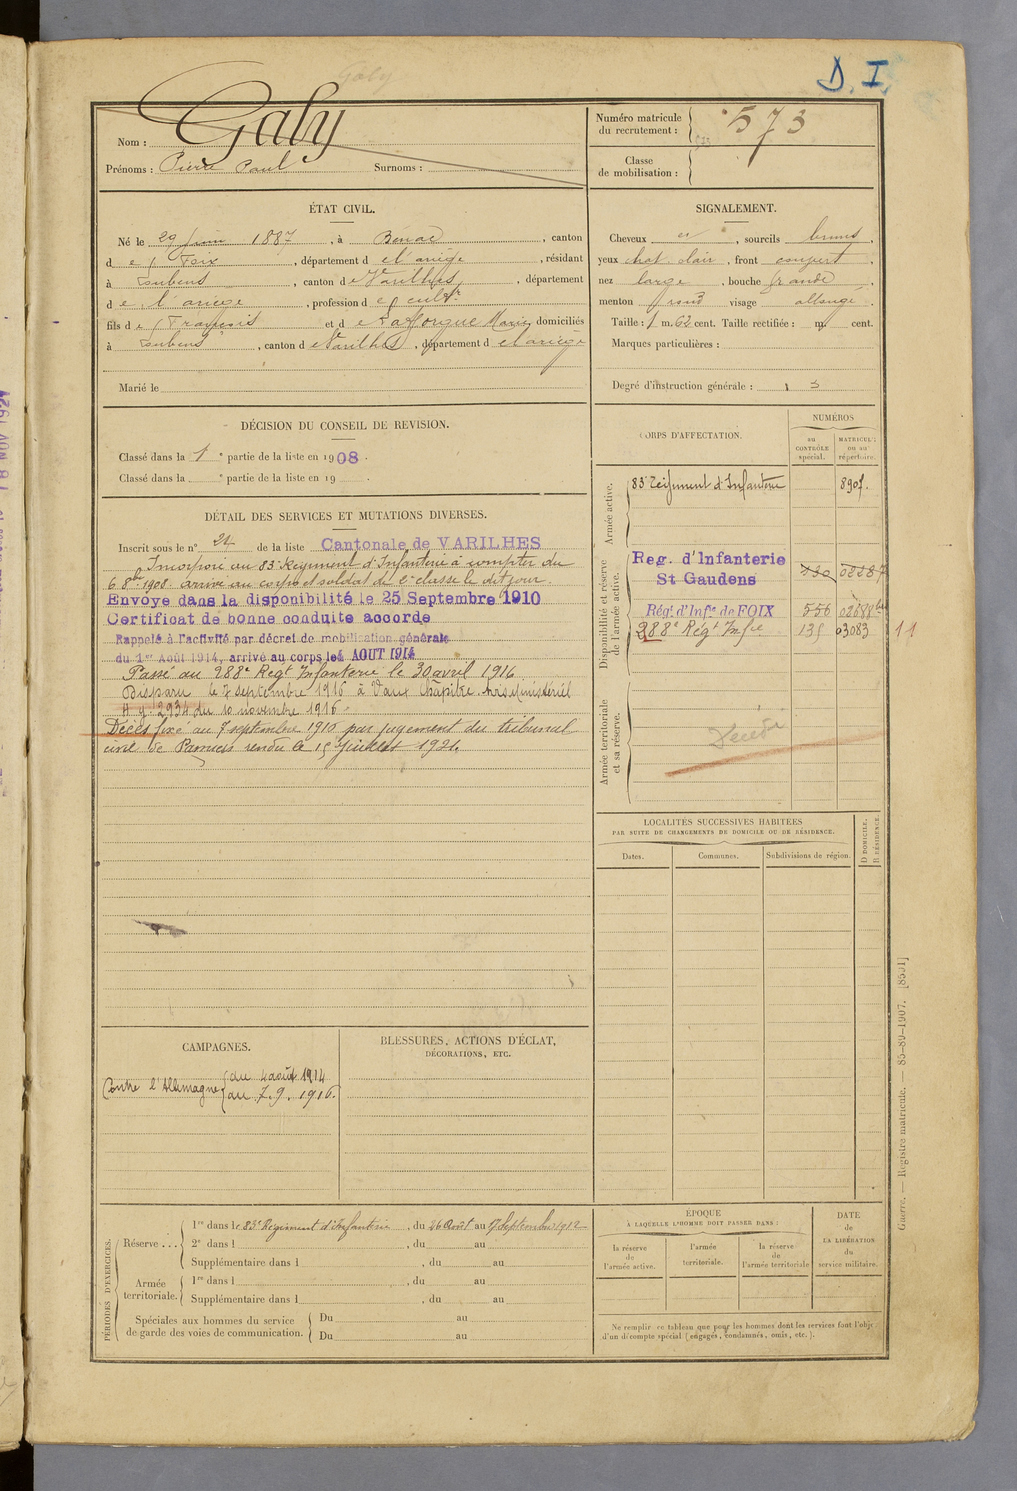 D. I.
Nom : Galy
Prénoms : Pierre Paul Surnoms :
Numéro matricule du recrutement : 573
Classe de mobilisation :
ÉTAT CIVIL.
Né le 29 Juin 1887, à Benac, canton
de Foix, département de l'ariège, résidant
à Loubens, canton de Varilhes, département
de l'ariège, profession de cultr
fils de François et de Lafforgue Marie domiciliés
à Loubens, canton de Varilhes, département de l'ariège
Marié le
SIGNALEMENT.
Cheveux et, sourcils bruns,
yeux chat. clair, front couvert,
nez large, bouche grande,
menton rond visage allongé
Taille : 1 m. 62 cent. Taille rectifiée : m. cent.
Marques particulières :
Degré d'instruction générale : 3
DÉCISION DU CONSEIL DE REVISION.
Classé dans la 1e partie de la liste en 1908.
Classé dans la e partie de la liste en 19 .
DÉTAIL DES SERVICES ET MUTATIONS DIVERSES.
Inscrit sous le n° 24 de la liste Cantonale de VARILHES
Incorporé au 83e Régiment d'Infanterie à compter du
6 8bre 1908. arrivé au corps et soldat de 2e classe le dit jour.
Envoye dans la disponibilité le 25 Septembre 1910
Certificat de bonne conduite accorde
Rappelé à l'activité par décret de mobilisation générale
du 1er Août 1914, arrivé au corps le 4 AOUT 1914
Passé au 288e Regt Infanterie le 30 avril 1916
Disparu le 7 septembre 1916 à Vaux Chapitre. Avis Ministériel
H y. 2934 du 10 novembre 1916.
Décès fixé au 7 septembre 1916 par jugement du tribunal
civil de Pamiers rendu le 15 Juillet 1921.
CORPS D'AFFECTATION.
NUMÉROS
au CONTRÔLE spécial.
MATRICULE ou au répertoire.
Armée active.
83e Régiment d'Infanterie 8907.
Disponibilité et réserve de l'armée active.
Reg. d'Infanterie
St Gaudens
Régt d'Infie de FOIX 556
288e Régt Infie 135 03083
11
Armée territoriale et sa réserve.
Décédé
LOCALITÉS SUCCESSIVES HABITÉES
PAR SUITE DE CHANGEMENTS DE DOMICILE OU DE RÉSIDENCE.
Dates. Communes. Subdivisions de région. D DOMICILE. R RÉSIDENCE.
CAMPAGNES.
Contre l'Allemagne du 4 août 1914
au 7.9.1916.
BLESSURES, ACTIONS D'ÉCLAT,
DÉCORATIONS, ETC.
PÉRIODES D'EXERCICES.
Réserve ... 1re dans le 83e Régiment d'Infanterie, du 26 Août au 17 Septembre 1912
2e dans l , du au
Supplémentaire dans l , du au
Armée territoriale. 1re dans l , du au
Supplémentaire dans l , du au
Spéciales aux hommes du service de garde des voies de communication. Du au
Du au
ÉPOQUE
À LAQUELLE L'HOMME DOIT PASSER DANS :
la réserve de l'armée active.
l'armée territoriale.
la réserve de l'armée territoriale
DATE de LA LIBÉRATION du service militaire.
Ne remplir ce tableau que pour les hommes dont les services font l'objet
d'un décompte spécial (engagés, condamnés, omis, etc.).
Guerre. — Registre matricule. — 85-89-1907. [8591]